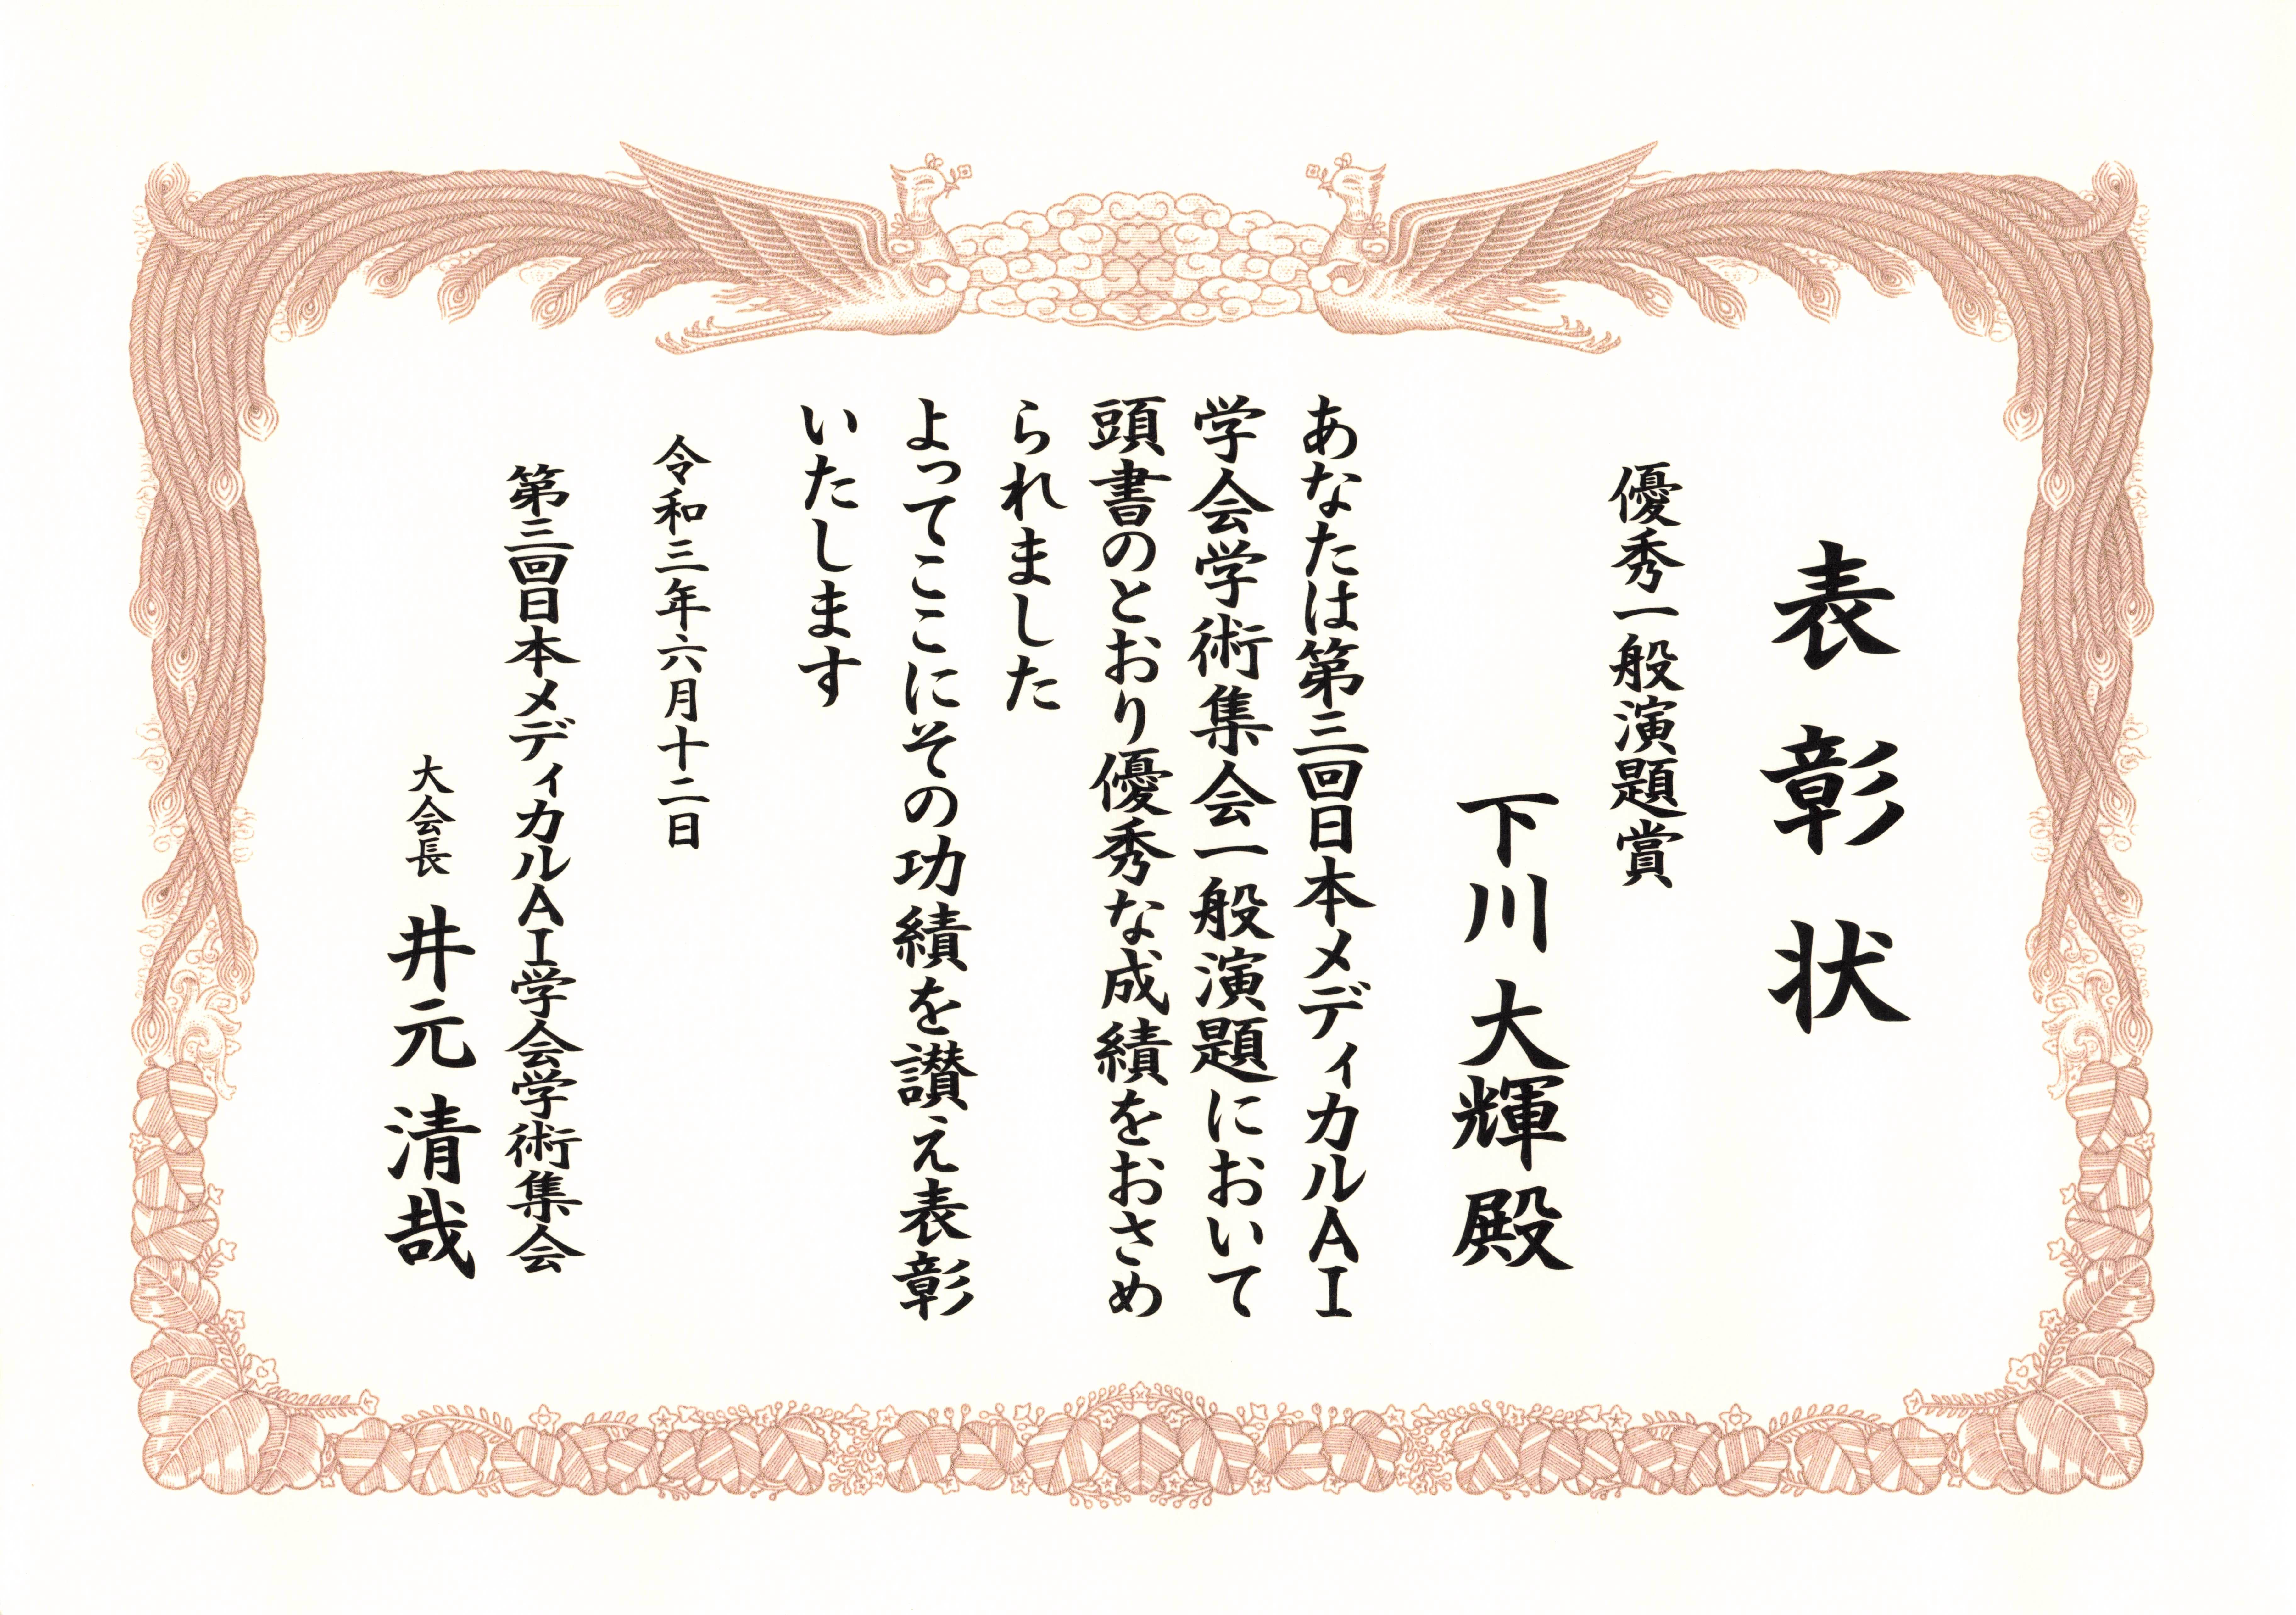 表彰状
優秀一般演題賞
下川 大輝 殿
あなたは第三回日本メディカルAI
学会学術集会一般演題において
頭書のとおり優秀な成績をおさめ
られました
よってここにその功績を讃え表彰
いたします
令和三年六月十二日
第三回日本メディカルAI学会学術集会
大会長 井元 清哉